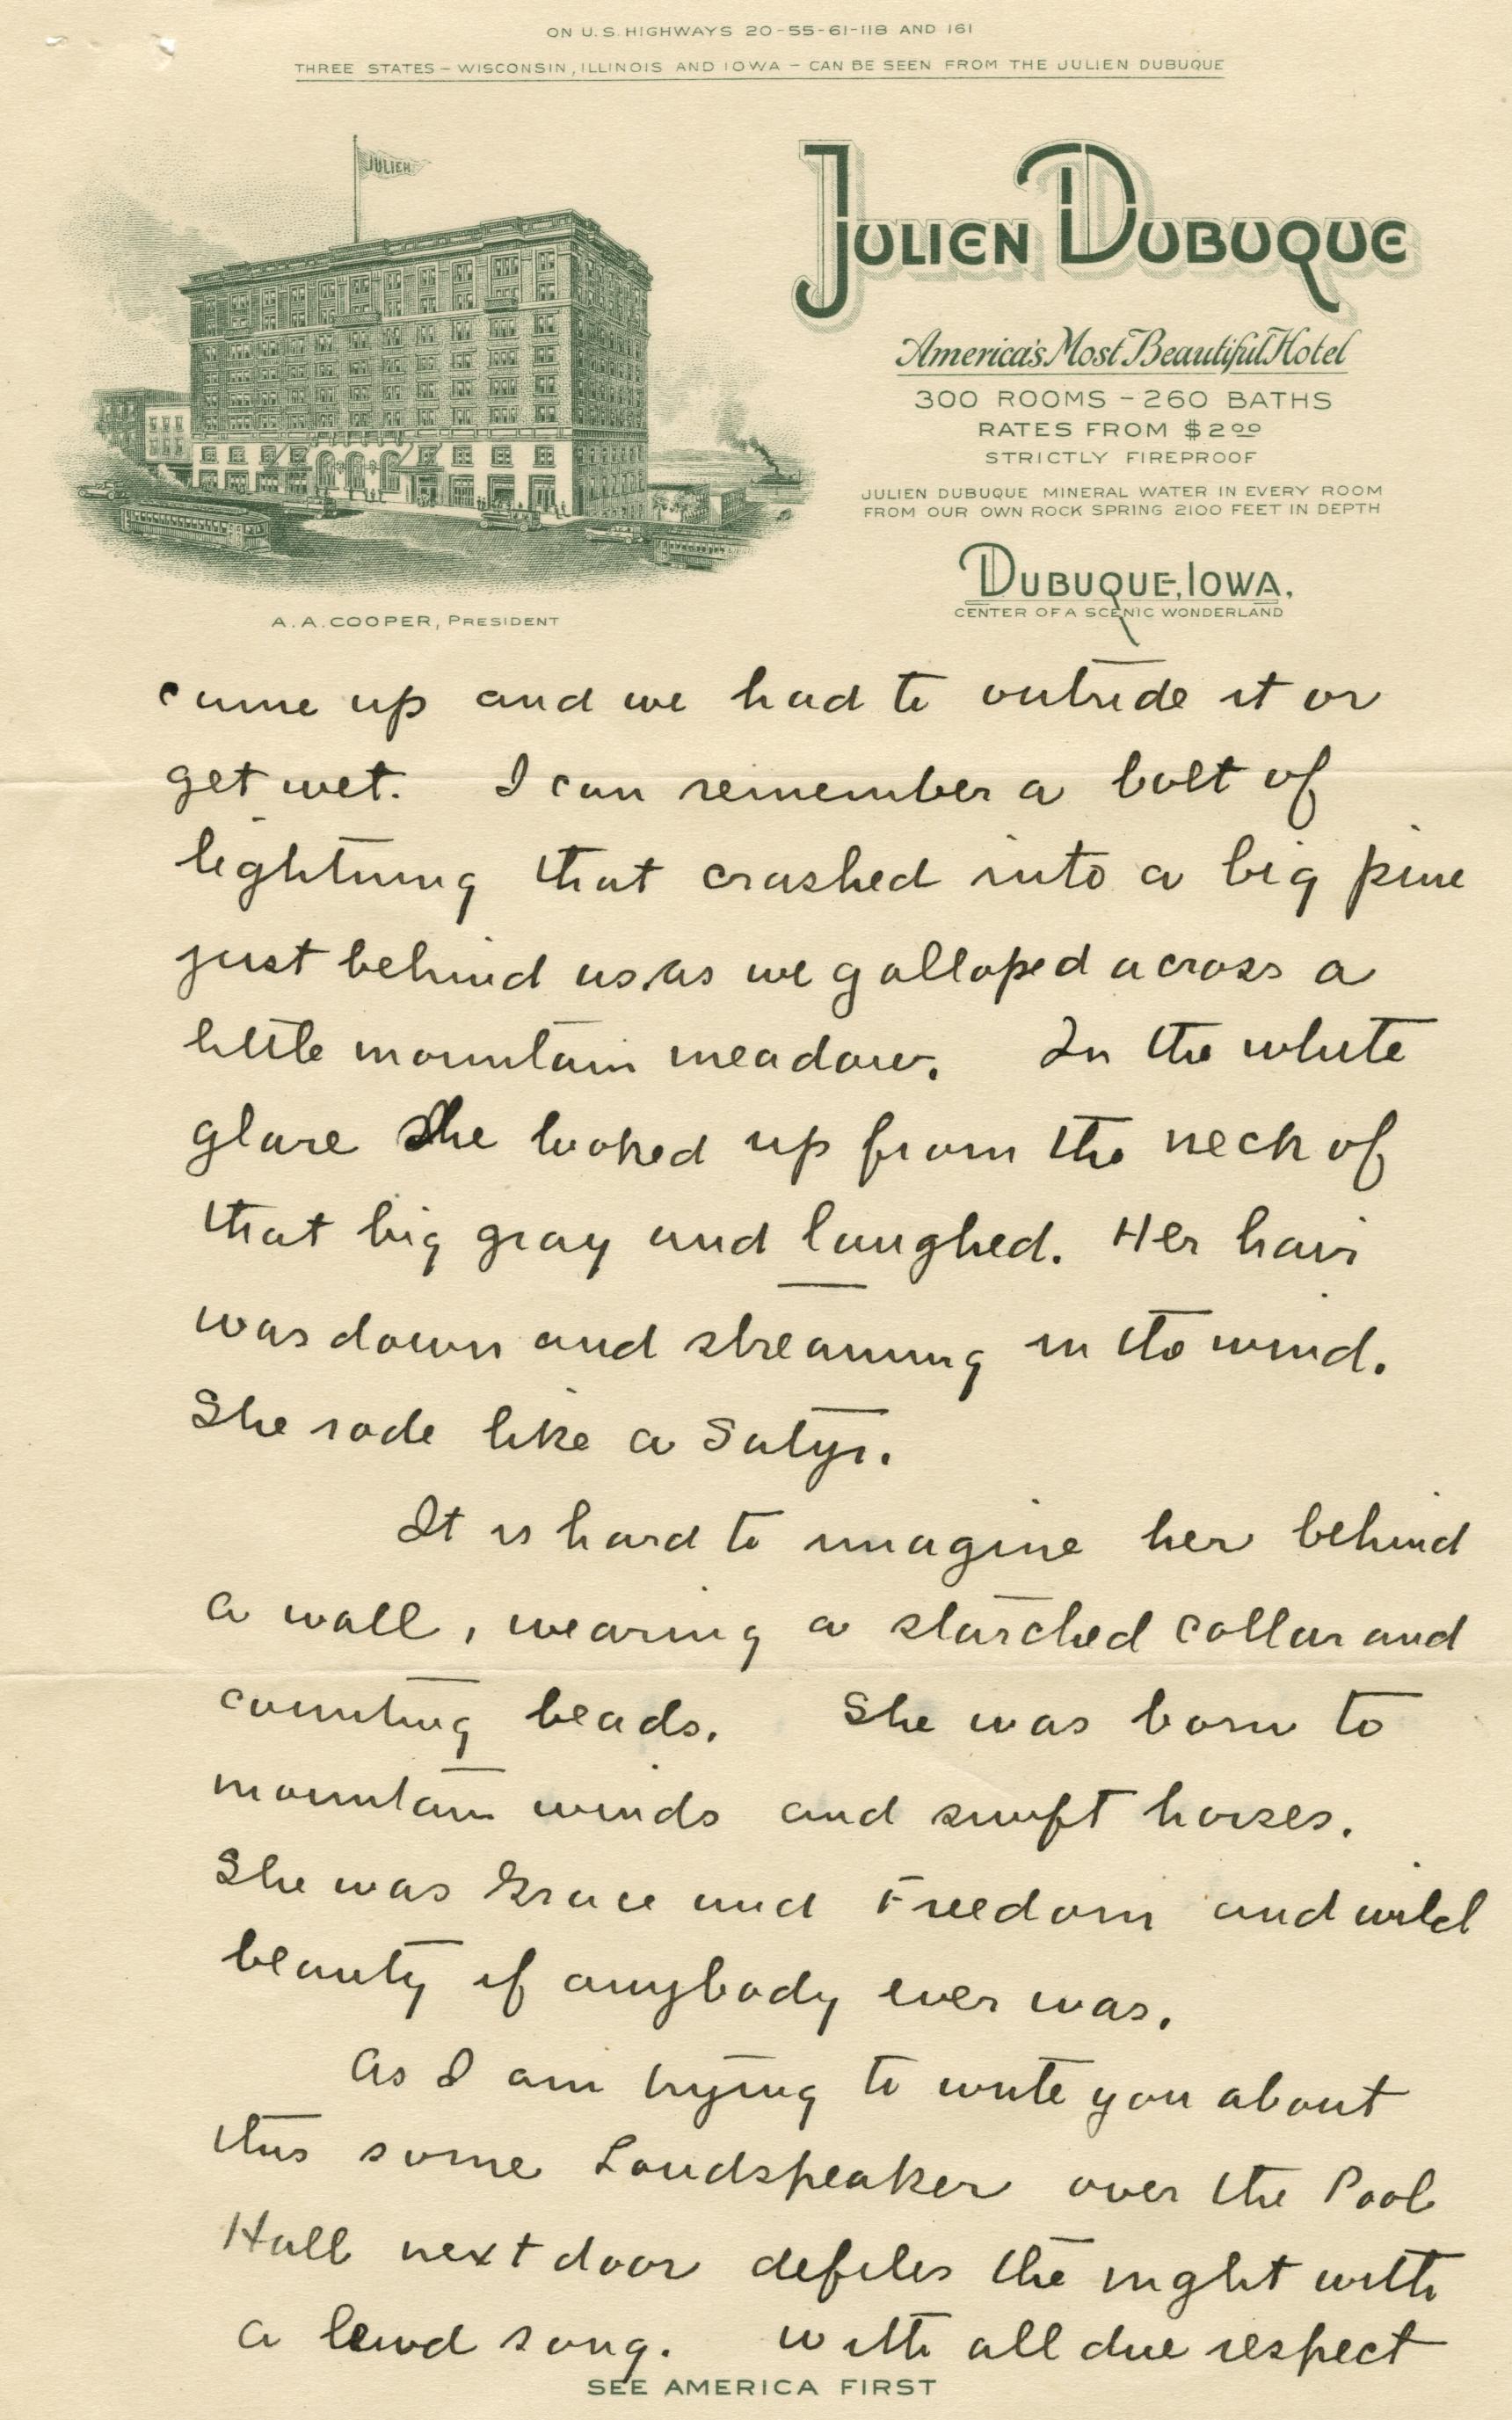 ON U.S. HIGHWAYS 20-55-61-118 AND 161
THREE STATES - WISCONSIN, ILLINOIS AND IOWA - CAN BE SEEN FROM THE JULIEN DUBUQUE
JULIEN
JULIEN DUBUQUE
America's Most Beautiful Hotel
300 ROOMS - 260 BATHS
RATES FROM $2.00
STRICTLY FIREPROOF
JULIEN DUBUQUE MINERAL WATER IN EVERY ROOM
FROM OUR OWN ROCK SPRING 2100 FEET IN DEPTH
DUBUQUE, IOWA.
CENTER OF A SCENIC WONDERLAND
A. A. COOPER, PRESIDENT
came up and we had to outride it or
get wet. I can remember a bolt of
lightning that crashed into a big pine
just behind us as we galloped across a
little mountain meadow. In the white
glare She looked up from the neck of
that big gray and laughed. Her hair
was down and streaming in the wind.
She rode like a Satyr.
It is hard to imagine her behind
a wall, wearing a starched collar and
counting beads. She was born to
mountain winds and swift horses.
She was Grace and Freedom and wild
beauty if anybody ever was.
As I am trying to write you about
this some Loudspeaker over the Pool
Hall next door defiles the night with
a lewd song. With all due respect
SEE AMERICA FIRST